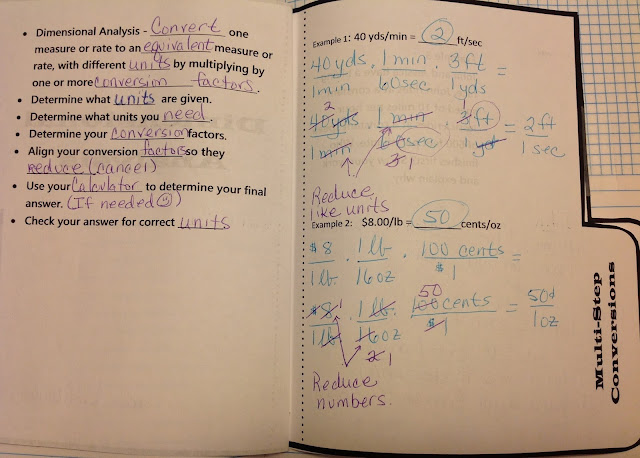 • Dimensional Analysis - Convert one
measure or rate to an equivalent measure or
rate, with different units by multiplying by
one or more conversion factors.
• Determine what units are given.
• Determine what units you need.
• Determine your conversion factors.
• Align your conversion factors so they
reduce (cancel)
• Use your Calculator to determine your final
answer. (If needed☺)
• Check your answer for correct units
Example 1: 40 yds/min = 2 ft/sec
40 yds . 1 min . 3 ft =
1 min 60 sec 1 yds
2 1
40 yds . 1 min . 3 ft = 2 ft
1 min 60 sec 1 yd 1 sec
3 1
Reduce
like units
Example 2: $8.00/lb = 50 cents/oz
$8 . 1 lb . 100 cents =
1 lb 16 oz $1
1 50
$8 . 1 lb . 100 cents = 50¢
1 lb 16 oz $1 1 oz
2 1
Reduce
numbers.
Multi-Step
Conversions